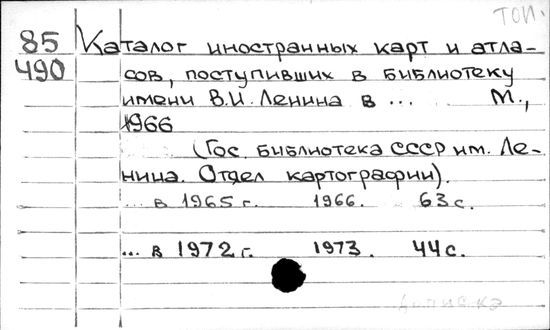 ТОИ.
85 Каталог иностранных карт и атла-
490 сов, поступивших в библиотеку
имени В.И. Ленина в ... М.,
1966
(Гос. библиотека СССР им. Ле-
нина. Отдел картографии).
... в 1965 г. 1966. 63 с.
... в 1972 г. 1973. 44 с.